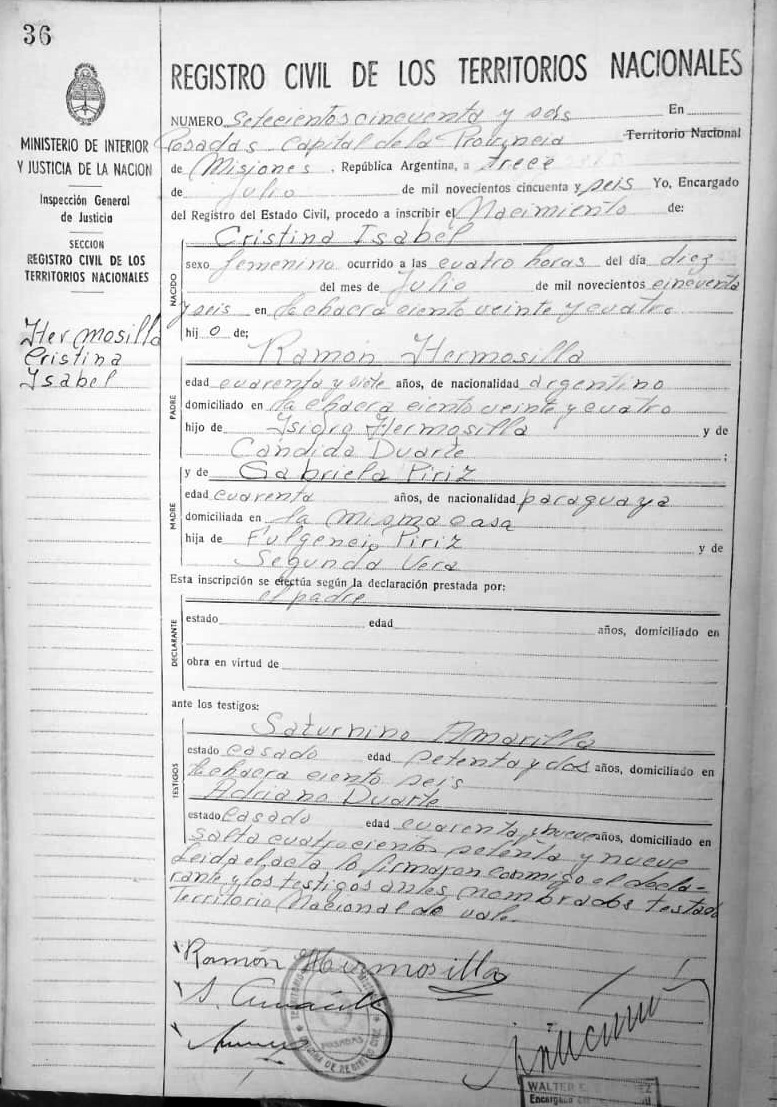 36
MINISTERIO DE INTERIOR
Y JUSTICIA DE LA NACION
Inspección General
de Justicia
SECCION
REGISTRO CIVIL DE LOS
TERRITORIOS NACIONALES
Hermosilla
Cristina
Isabel
REGISTRO CIVIL DE LOS TERRITORIOS NACIONALES
NUMERO Setecientos cincuenta y seis En
Posadas Capital de la Provincia Territorio Nacional
de Misiones, República Argentina, a trece
de Julio de mil novecientos cincuenta y seis Yo, Encargado
del Registro del Estado Civil, procedo a inscribir el Nacimiento de:
NACIDO
Cristina Isabel
sexo femenino ocurrido a las cuatro horas del día diez
del mes de Julio de mil novecientos cincuenta
y seis en la chacra ciento veinte y cuatro
hij o de;
PADRE
Ramón Hermosilla
edad cuarenta y siete años, de nacionalidad argentino
domiciliado en la chacra ciento veinte y cuatro
hijo de Isidro Hermosilla y de
Candida Duarte ;
MADRE
y de Gabriela Piriz
edad cuarenta años, de nacionalidad paraguaya
domiciliada en la misma casa
hija de Fulgencio Piriz y de
Segunda Vera
Esta inscripción se efectúa según la declaración prestada por:
el padre
DECLARANTE
estado edad años, domiciliado en
obra en virtud de
ante los testigos:
TESTIGOS
Saturnino Amarilla
estado casado edad setenta y dos años, domiciliado en
la chacra ciento seis
Adriano Duarte
estado casado edad cuarenta y nueve años, domiciliado en
Salta cuatrocientos setenta y nueve
Leida el acta la firmaron conmigo el decla-
rante y los testigos antes nombrados testado
Territorio Nacional no vale.
Ramón Hermosilla
POSADAS
WALTER
Encargado